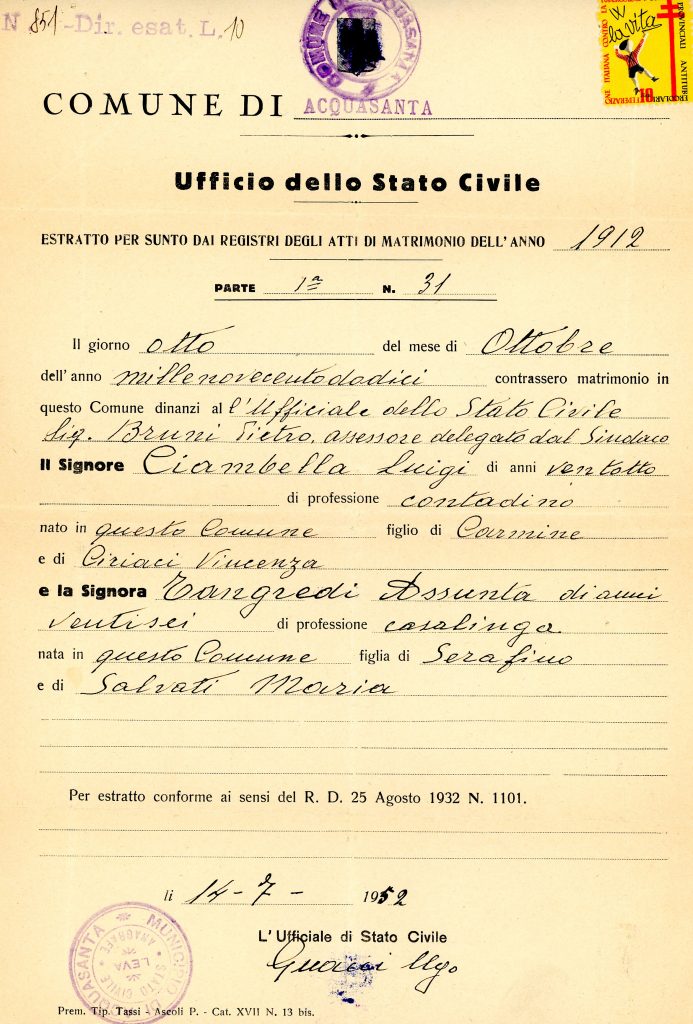 N. 851 - Dir. esat. L. 10
COMUNE DI ACQUASANTA
W la vita
10
COMUNE DI ACQUASANTA
Ufficio dello Stato Civile
ESTRATTO PER SUNTO DAI REGISTRI DEGLI ATTI DI MATRIMONIO DELL'ANNO 1912
PARTE 1ª N. 31
Il giorno otto del mese di Ottobre
dell'anno millenovecentododici contrassero matrimonio in
questo Comune dinanzi al l'Ufficiale dello Stato Civile
Sig. Bruni Pietro, assessore delegato dal Sindaco
Il Signore Ciambella Luigi di anni ventotto
di professione contadino
nato in questo Comune figlio di Carmine
e di Ciriaci Vincenza
e la Signora Tangredi Assunta di anni
ventisei di professione casalinga
nata in questo Comune figlia di Serafino
e di Salvati Maria
Per estratto conforme ai sensi del R. D. 25 Agosto 1932 N. 1101.
li 14-7- 1952
L'Ufficiale di Stato Civile
Ugo
MUNICIPIO DI ACQUASANTA
STATO CIVILE ANAGRAFE
LEVA
Prem. Tip. Tassi - Ascoli P. - Cat. XVII N. 13 bis.